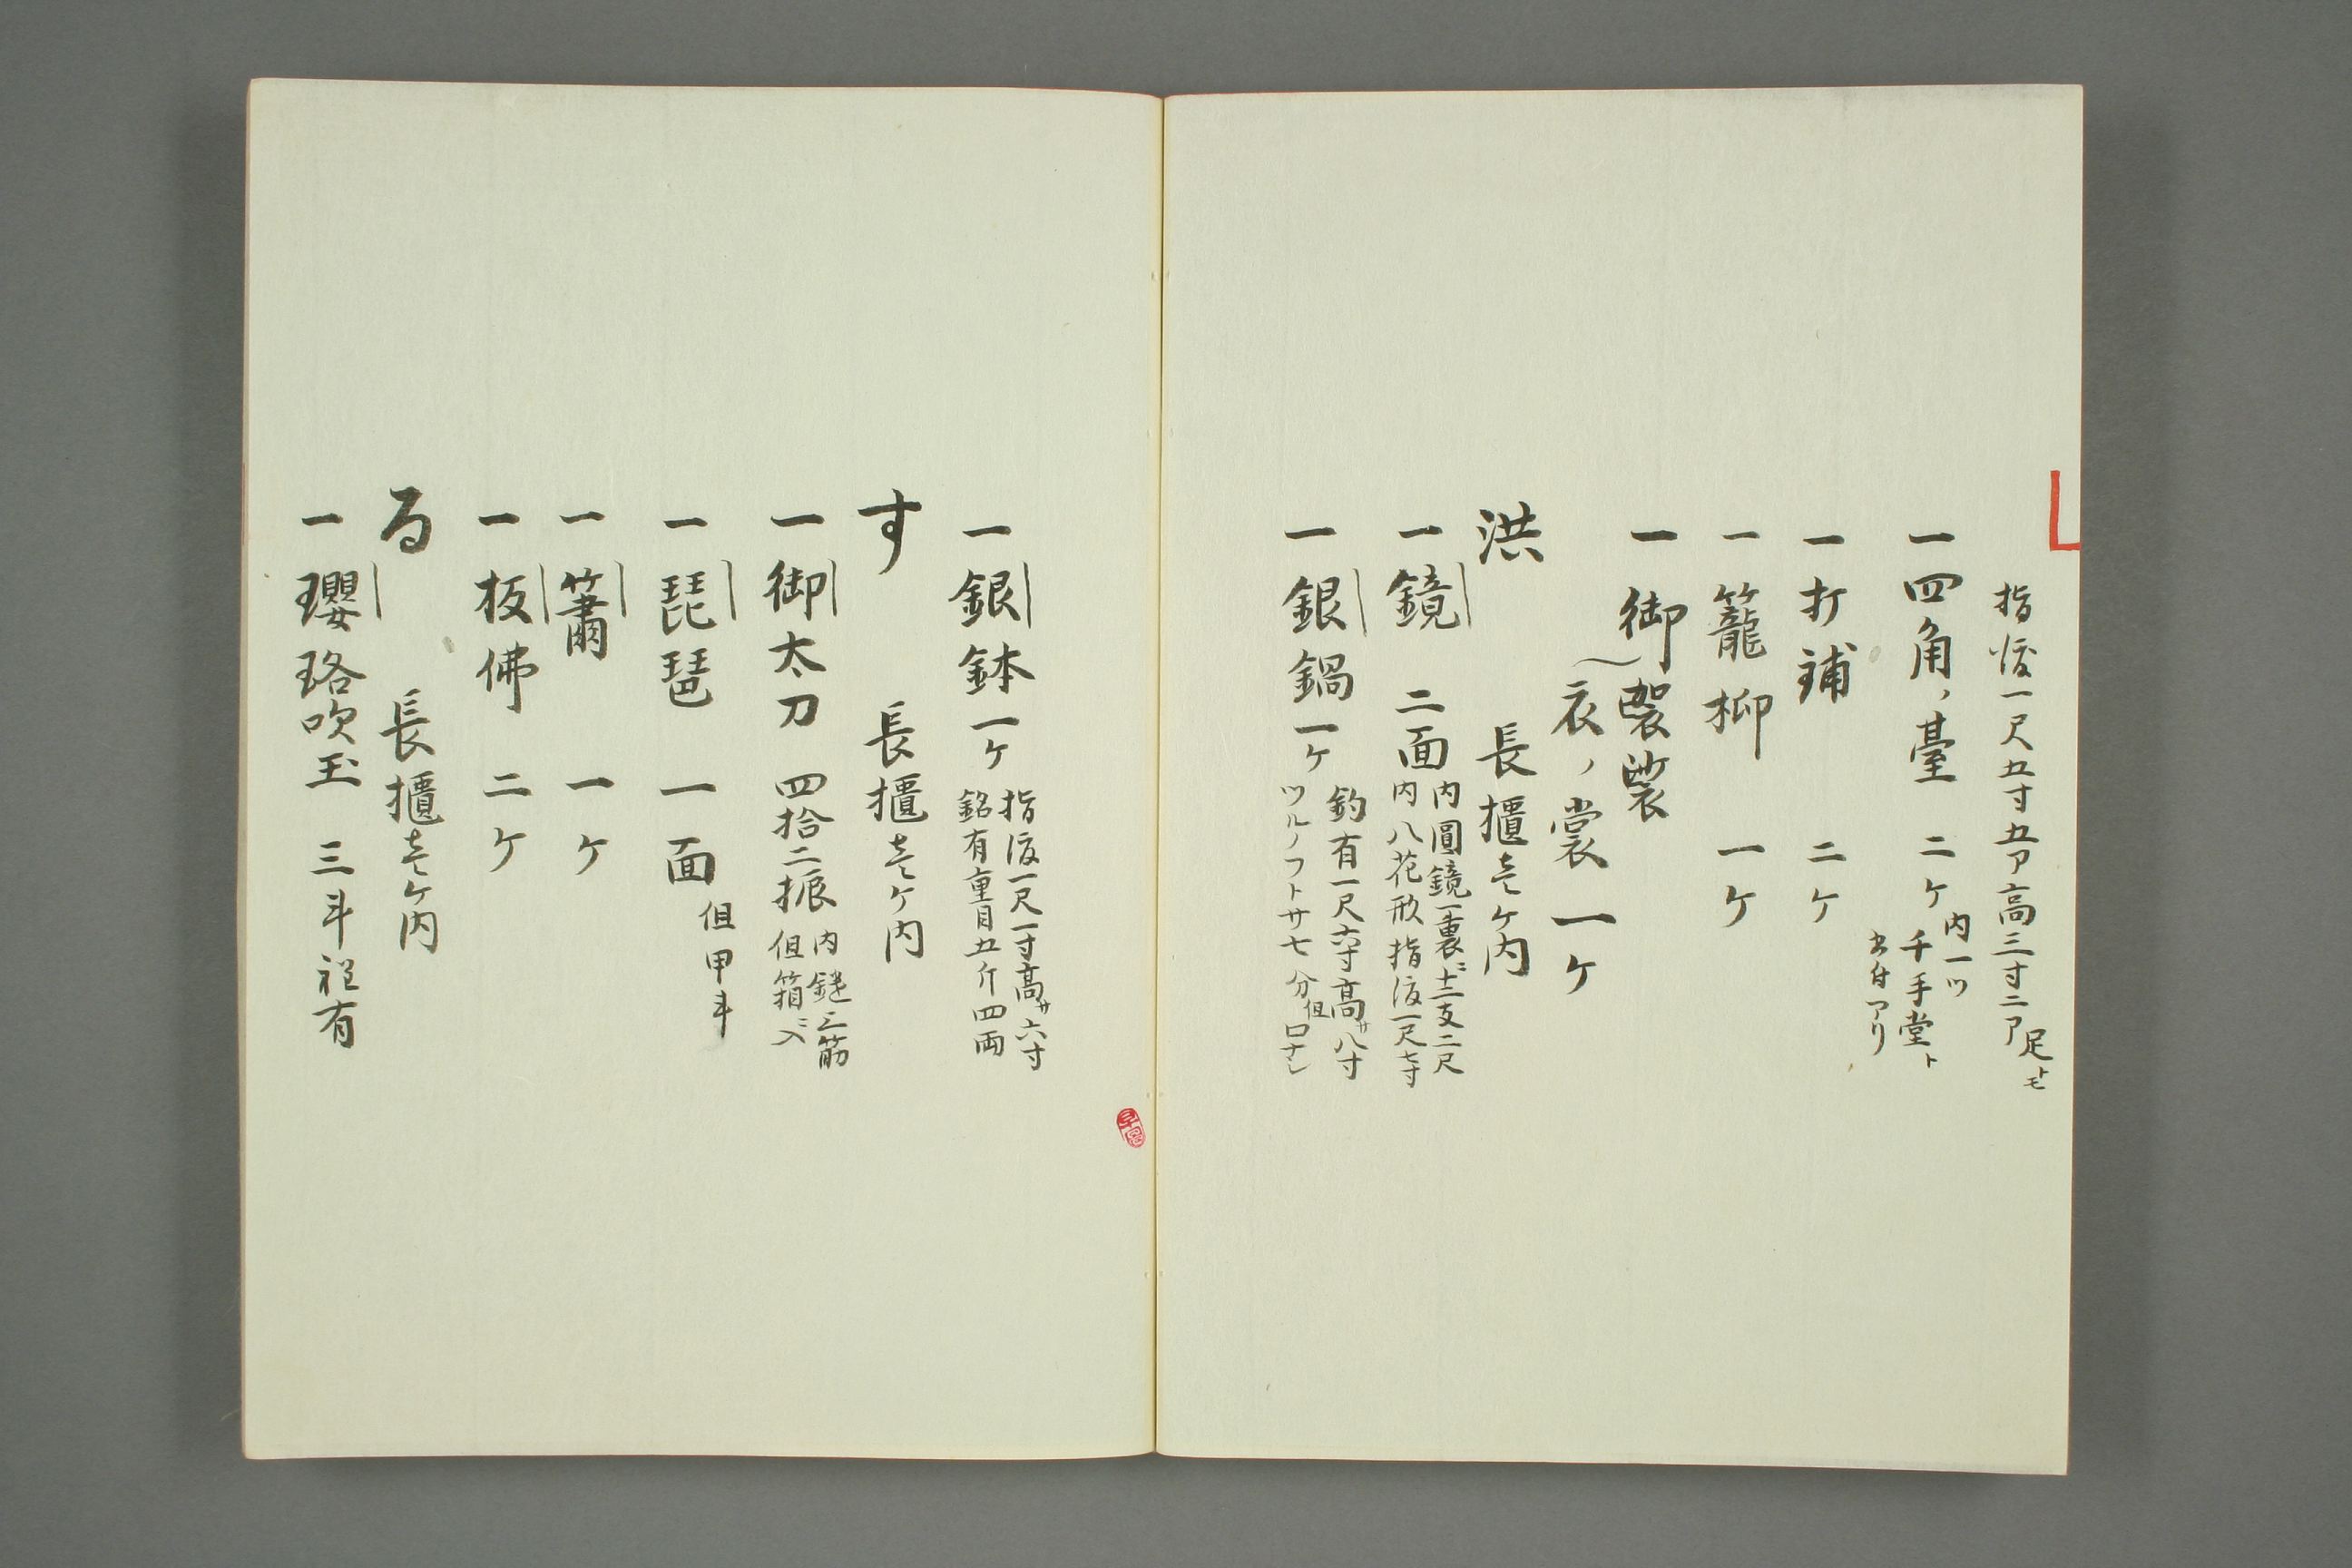 指渡一尺五寸五ア高三寸二ア足トモ
一四角ノ臺 二ケ 内一ツ
千手堂ト
書付アリ
一打鋪 二ケ
一籠柳 一ケ
一御袈裟
衣ノ裳 一ケ
洪 長櫃壱ケ内
一鏡 二面 内圓鏡一裏ニ十二支二尺
内八花形指渡一尺七寸
一銀鍋一ケ 釣有一尺六寸高サ八寸
ツルノフトサ七分但口ナシ
一銀鉢一ケ 指渡一尺一寸高サ六寸
銘有重目五斤四両
す 長櫃壱ケ内
一御太刀 四拾二振 内鑓三筋
但箱ニ入
一琵琶 一面 但甲斗
一簫 一ケ
一板佛 二ケ
る 長櫃壱ケ内
一瓔珞吹玉 三斗程有